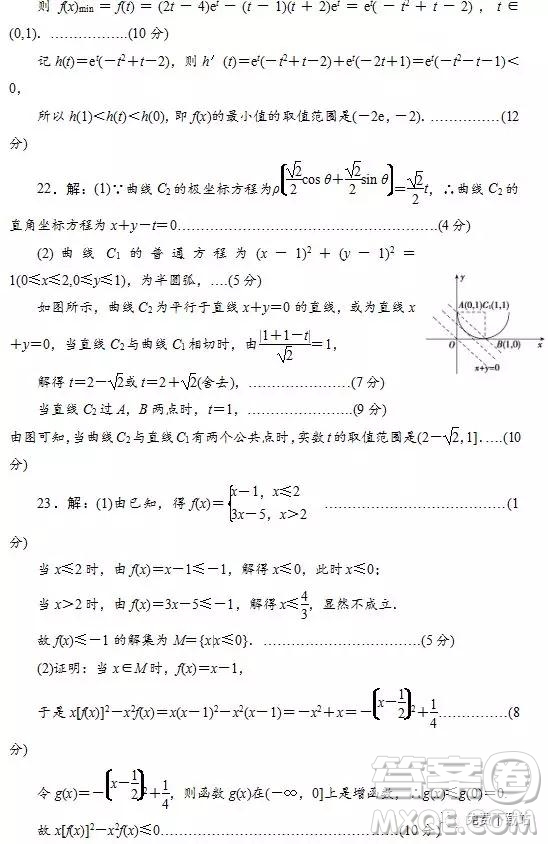 则 f(x)min=f(t)=(2t-4)eᵗ-(t-1)(t+2)eᵗ=eᵗ(-t²+t-2), t∈
(0,1). ………………(10 分)
记 h(t)=eᵗ(-t²+t-2), 则 h′(t)=eᵗ(-t²+t-2)+eᵗ(-2t+1)=eᵗ(-t²-t-1)<
0,
所以 h(1)<h(t)<h(0), 即 f(x)的最小值的取值范围是(-2e, -2). ……………(12
分)
22. 解: (1)∵曲线 C₂的极坐标方程为ρ(√2/2 cos θ+√2/2 sin θ)=√2/2 t, ∴曲线 C₂的
直角坐标方程为 x+y-t=0………………………………………(4 分)
(2) 曲线 C₁ 的普通方程为 (x-1)²+(y-1)²=
1(0≤x≤2,0≤y≤1), 为半圆弧, ….(5 分)
如图所示, 曲线 C₂为平行于直线 x+y=0 的直线, 或为直线 x
+y=0, 当直线 C₂与曲线 C₁相切时, 由|1+1-t|/√2=1,
解得 t=2-√2或 t=2+√2(舍去), …………………(7 分)
当直线 C₂过 A, B 两点时, t=1, …………………(9 分)
y
A(0,1)
C₁(1,1)
O
B(1,0)
x
x+y=0
由图可知,当曲线 C₂与直线 C₁有两个公共点时,实数 t 的取值范围是(2-√2,1]. ….(10
分)
23. 解: (1)由已知, 得 f(x)={x-1, x≤2
3x-5, x>2 ……………………………(1
分)
当 x≤2 时, 由 f(x)=x-1≤-1, 解得 x≤0, 此时 x≤0;
当 x>2 时, 由 f(x)=3x-5≤-1, 解得 x≤4/3, 显然不成立.
故 f(x)≤-1 的解集为 M={x|x≤0}. …………………………(5 分)
(2)证明: 当 x∈M 时, f(x)=x-1,
于是 x[f(x)]²-x²f(x)=x(x-1)²-x²(x-1)=-x²+x=-(x-1/2)²+1/4……………(8
分)
令 g(x)=-(x-1/2)²+1/4, 则函数 g(x)在(-∞, 0]上是增函数, ∴g(x)≤g(0)=0
故 x[f(x)]²-x²f(x)≤0………………………………………(10 分)
答案圈